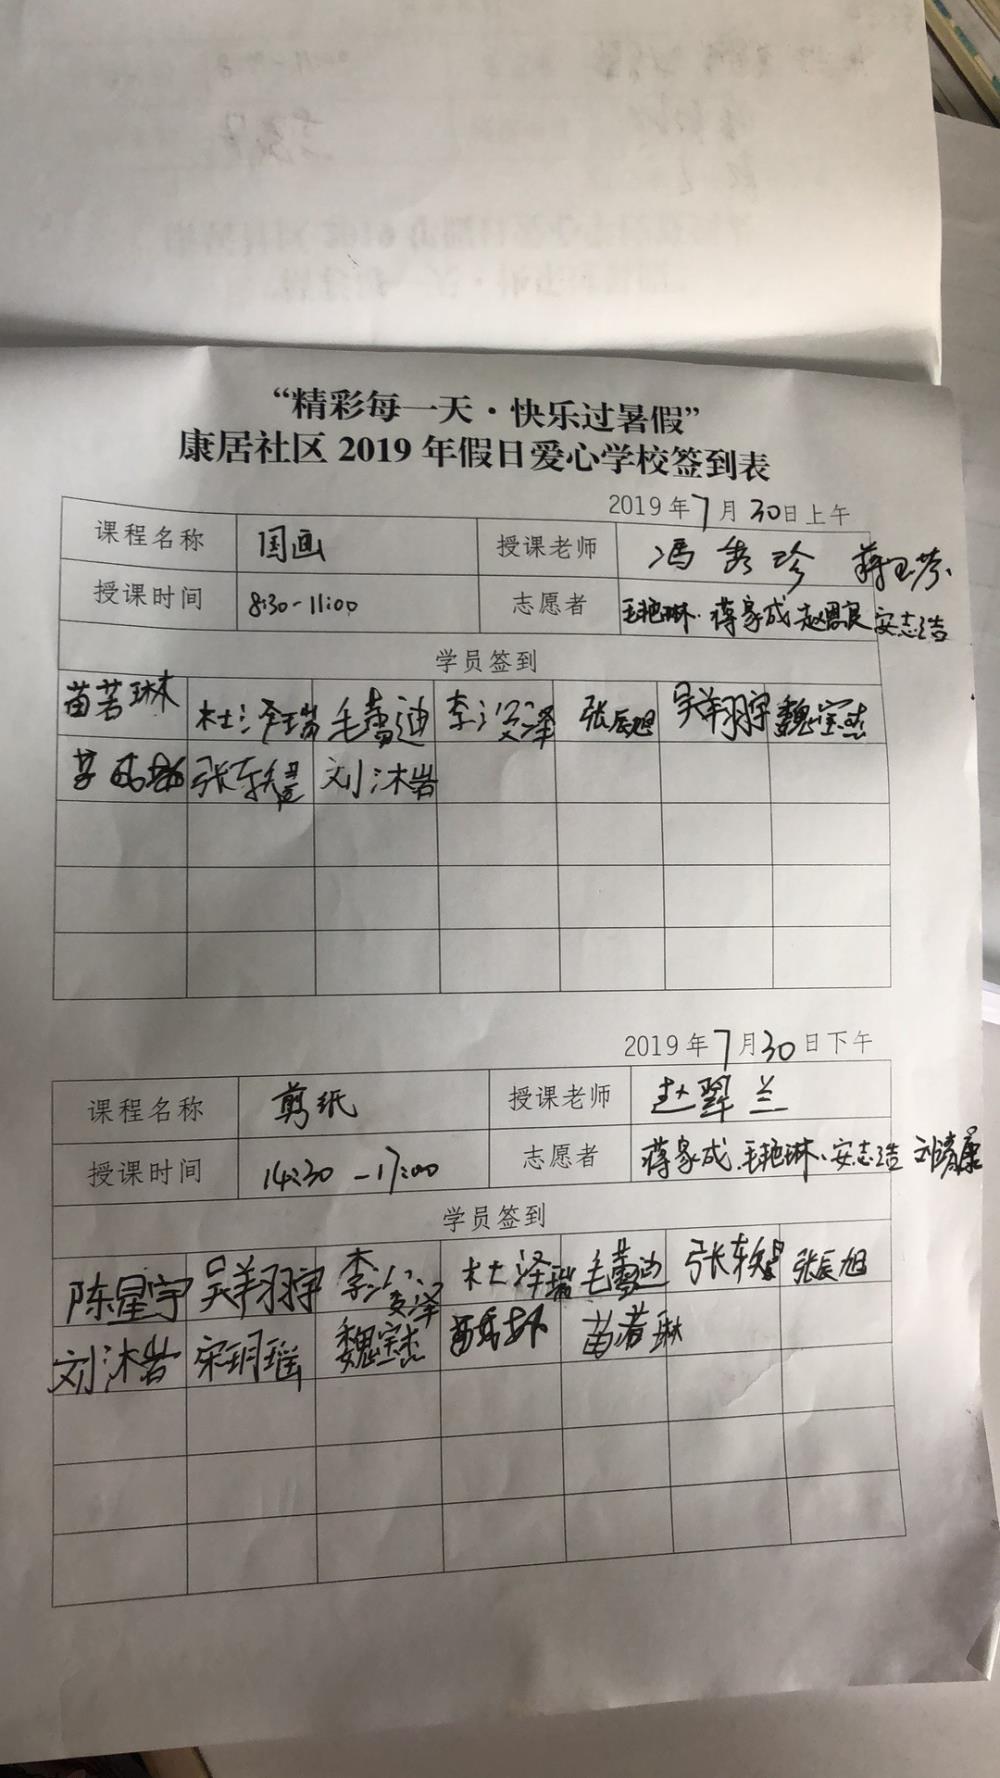 “精彩每一天·快乐过暑假”
康居社区 2019 年假日爱心学校签到表
2019 年 7 月 30 日上午
课程名称 国画 授课老师 冯秀珍 蒋玉芬
授课时间 8:30-11:00 志愿者 毛艳琳、蒋家成 赵思良 安志浩
学员签到
苗若琳 杜泽瑞 毛萱迪 李浚泽 张辰旭 吴翔宇 魏宝杰
张轶 刘沐岩
2019 年 7 月 30 日下午
课程名称 剪纸 授课老师 赵翠兰
授课时间 14:30-17:00 志愿者 蒋家成、毛艳琳、安志浩 刘靖康
学员签到
陈星宇 吴翔宇 李浚泽 杜泽瑞 毛萱迪 张轶 张辰旭
刘沐岩 宋玥瑶 魏宝杰 苗若琳